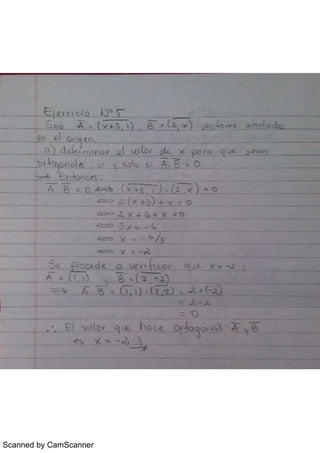 Ejercicio Nº 5
Sea A = (x+3, 1), B = (2, x) vectores anclados
en el origen.
a) determinar el valor de x para que sean
ortogonales si y solo si A.B = 0
⇒ Entonces
A.B = 0 ⟺ (x+3, 1)·(2, x) = 0
⟺ 2(x+3) + x = 0
⟺ 2x + 6 + x = 0
⟺ 3x = -6
⟺ x = -6/3
⟺ x = -2
Se procede a verificar que x = -2;
A = (1, 1) y B = (2, -2)
⇒ A·B = (1, 1)·(2, -2) = 2 + (-2)
= 2-2
= 0
∴ El valor que hace ortogonal A y B
es x = -2
Scanned by CamScanner